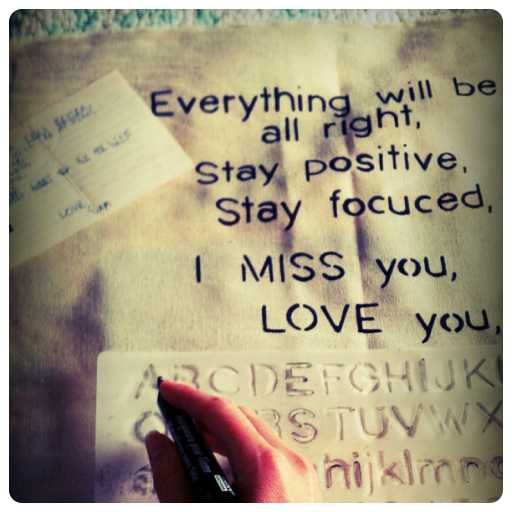 Everything will be
all right,
Stay positive,
Stay focuced,
I MISS you,
LOVE you,
ABCDEFGHIJK
RSTUVWX
hijklmn
LOVE